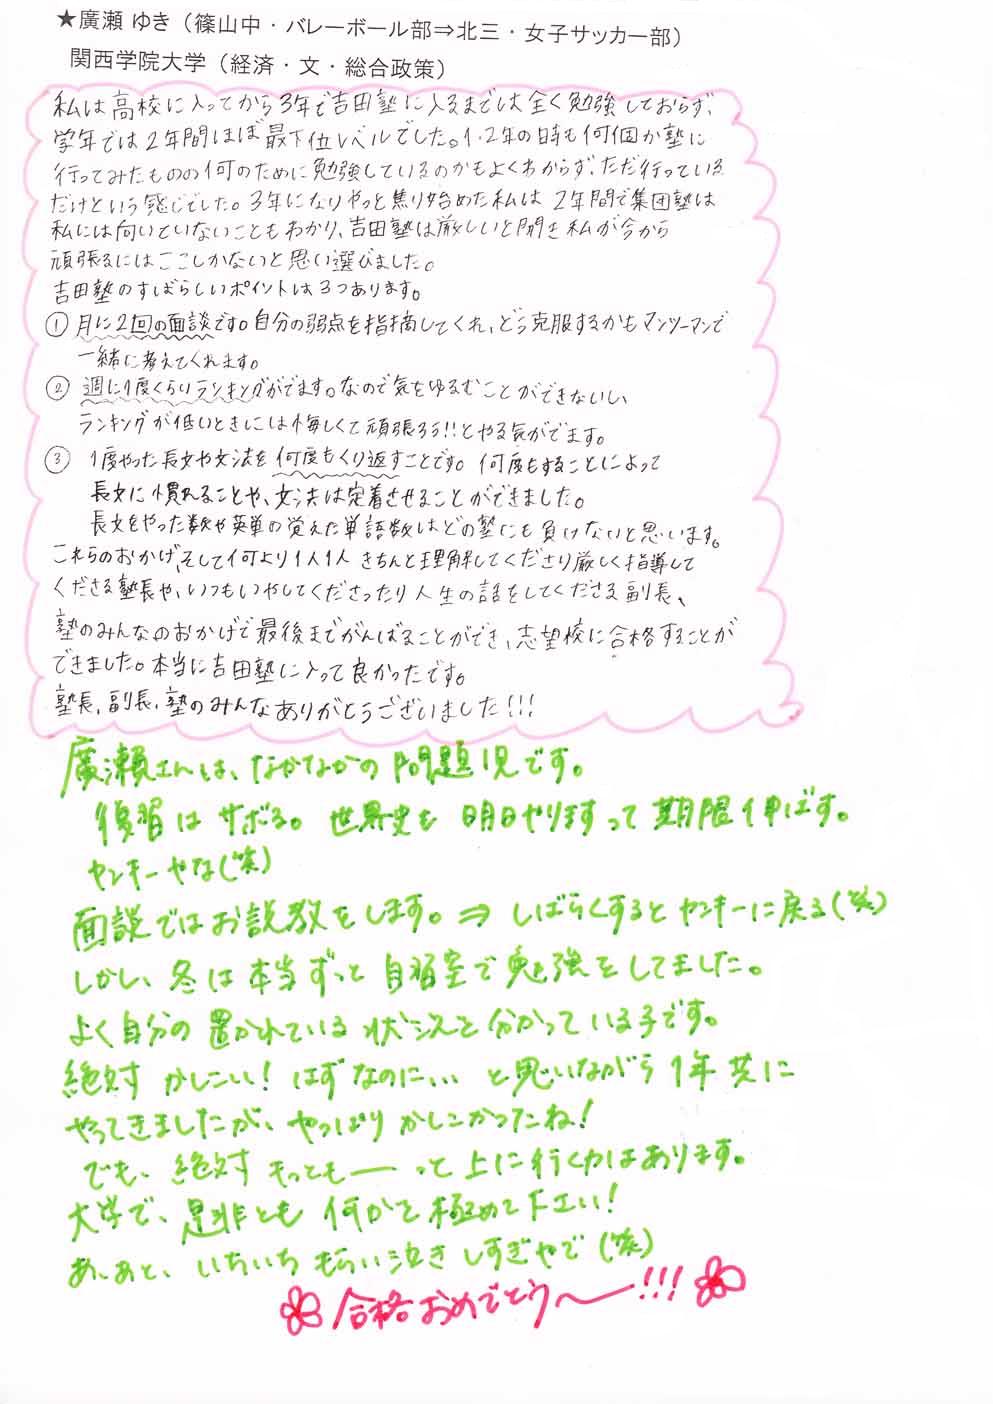 ★廣瀬 ゆき（篠山中・バレーボール部⇒北三・女子サッカー部）
関西学院大学（経済・文・総合政策）
私は高校に入ってから3年で吉田塾に入るまでは全く勉強しておらず、
学年では2年間ほぼ最下位レベルでした。1・2年の時も何個か塾に
行ってみたものの何のために勉強しているのかもよくわからず、ただ行っている
だけという感じでした。3年になりやっと焦り始めた私は 2年間で集団塾は
私には向いていないこともわかり、吉田塾は厳しいと聞き 私が今から
頑張るにはここしかないと思い選びました。
吉田塾のすばらしいポイントは3つあります。
① 月に2回の面談です。自分の弱点を指摘してくれ、どう克服するかもマンツーマンで
一緒に考えてくれます。
② 週に1度くらいランキングがでます。なので気をゆるむことができないし、
ランキングが低いときには悔しくて頑張ろう!!とやる気がでます。
③ 1度やった長文や文法を何度もくり返すことです。何度もすることによって
長文に慣れることや、文法は定着させることができました。
長文をやった数や英単の覚えた単語数はどの塾にも負けないと思います。
これらのおかげ、そして何より1人1人 きちんと理解してくださり厳しく指導して
くださる塾長や、いつもいやしてくださったり人生の話をしてくださる副長、
塾のみんなのおかげで最後までがんばることができ、志望校に合格することが
できました。本当に吉田塾に入って良かったです。
塾長、副長、塾のみんなありがとうございました!!!
廣瀬さんは、なかなかの問題児です。
復習はサボる。世界史を明日やりますって期限伸ばす。
ヤンキーやな(笑)
面談ではお説教をします。⇒しばらくするとヤンキーに戻る(笑)
しかし、冬は本当ずっと自習室で勉強をしてました。
よく自分の置かれている状況を分かっている子です。
絶対かしこい!はずなのに… と思いながら1年共に
やってきましたが、やっぱりかしこかったね!
でも、絶対もっともーっと上に行く力はあります。
大学で、是非とも何かを極めて下さい!
あ、あと、いちいちもらい泣きしすぎやで(笑)
合格おめでとう〜!!!